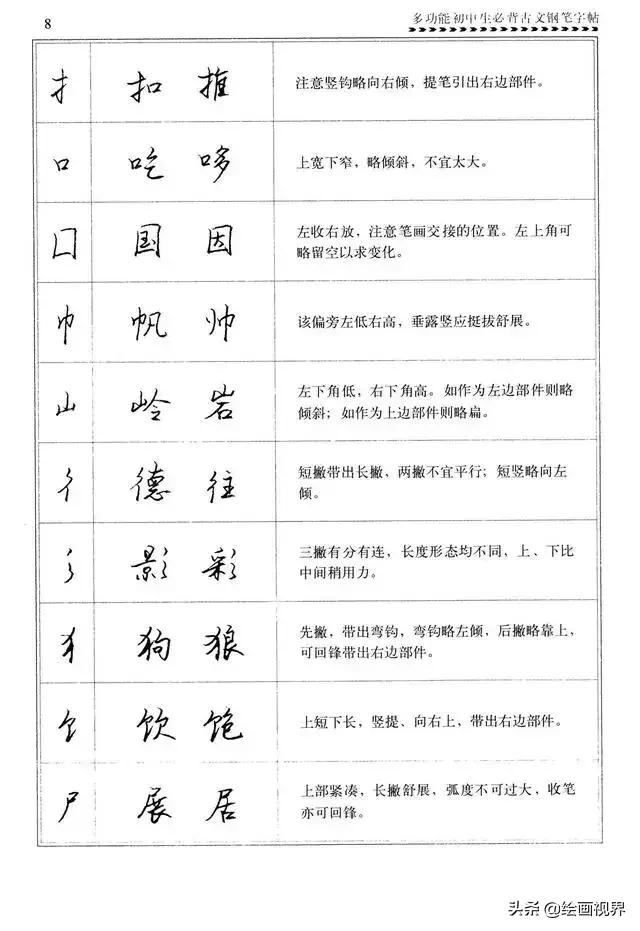 8
多功能初中生必背古文钢笔字帖
扌 扣 推 注意竖钩略向右倾，提笔引出右边部件。
口 吃 哆 上宽下窄，略倾斜，不宜太大。
囗 国 因 左收右放，注意笔画交接的位置。左上角可
略留空以求变化。
巾 帆 帅 该偏旁左低右高，垂露竖应挺拔舒展。
山 岭 岩 左下角低，右下角高。如作为左边部件则略
倾斜；如作为上边部件则略扁。
彳 德 往 短撇带出长撇，两撇不宜平行；短竖略向左
倾。
彡 影 彩 三撇有分有连，长度形态均不同，上、下比
中间稍用力。
犭 狗 狼 先撇，带出弯钩，弯钩略左倾，后撇略靠上，
可回锋带出右边部件。
饣 饮 饱 上短下长，竖提、向右上，带出右边部件。
尸 展 居 上部紧凑，长撇舒展、弧度不可过大，收笔
亦可回锋。
头条 @绘画视界